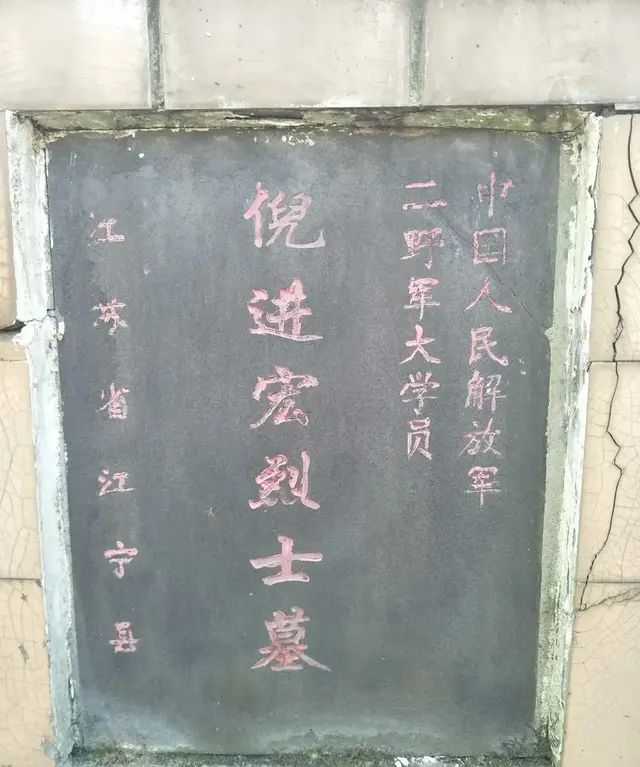 中国人民解放军
二野军大学员
倪进宏烈士墓
江苏省江宁县